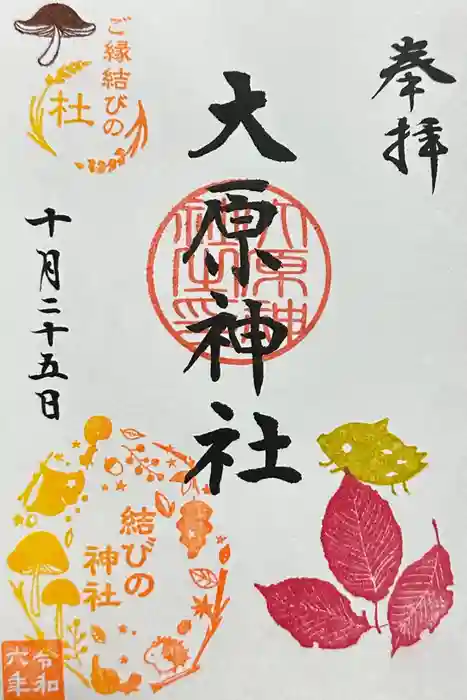 奉拝
大原神社
大原神社之印
ご縁結びの
杜
十月二十五日
結びの
神社
令和
六年